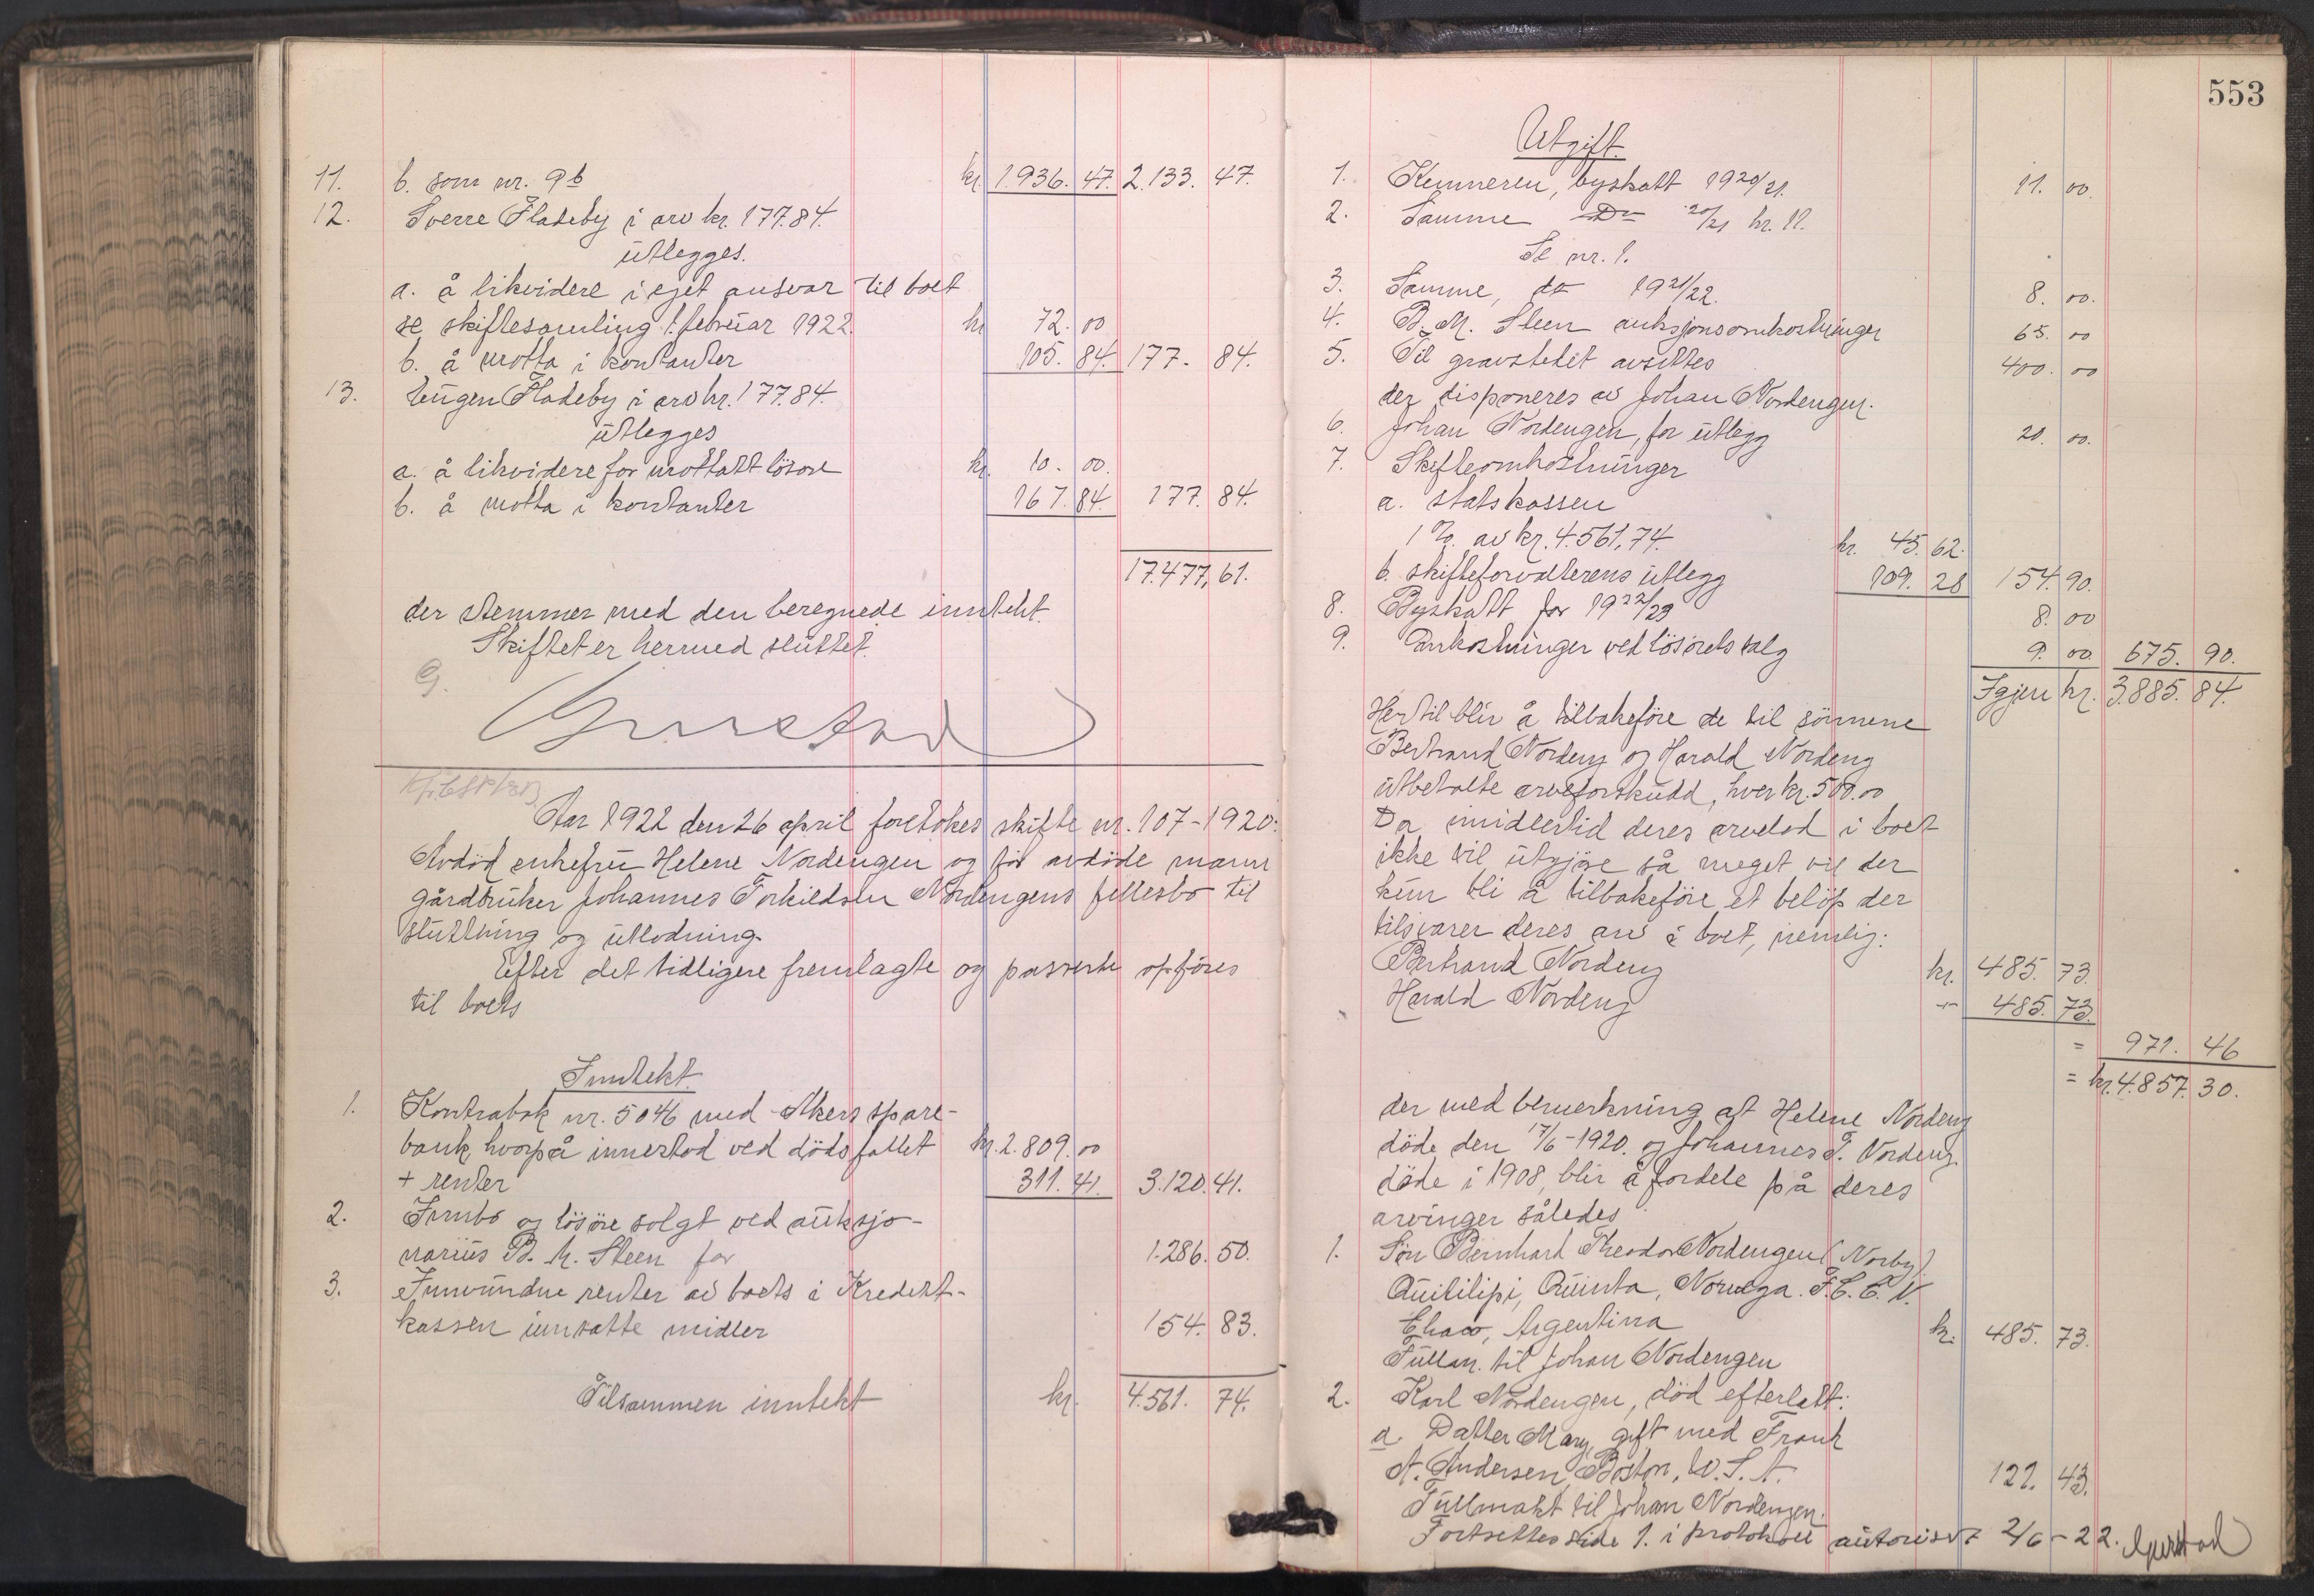 11. b. som nr. 9 b kr. 1.936. 47. 2.133. 47.
12. Sverre Fladeby i arv kr. 177.84.
utlegges.
a. å likvidere i eget ansvar til boet
se skiftesamling 1. februar 1922. kr. 72. 00
b. å motta i kontanter 105. 84. 177. 84.
13. Eugen Fladeby i arv kr. 177.84.
utlegges
a. å likvidere for mottatt lösöre kr. 10. 00.
b. å motta i kontanter 167. 84. 177. 84.
17.477, 61.
der stemmer med den beregnede inntekt.
Skiftet er hermed sluttet.
Aar 1922 den 26 april foretokes skifte nr. 107-1920:
Avdöd enkefru Helene Nordengen og för avdöde mann
gårdbruker Johannes Torkildsen Nordengens fellesbo til
slutning og utlodning.
Efter det tidligere fremlagte og passerte opföres
til boets
Inntekt.
1. Kontrabok nr. 5046 med Akers spare-
bank, hvorpå innestod ved dödsfallet kr. 2.809. 00
+ renter 311. 41. 3.120. 41.
2. Innbo og lösöre solgt ved auksjo-
narius B. M. Steen for 1.286. 50.
3. Innvundne renter av boets i Kreditt-
kassen innsatte midler 154. 83.
Tilsammen inntekt kr. 4.561. 74.
553
Utgift.
1. Kemneren, byskatt 1920/21. 11. 00.
2. Samme Do 20/21 kr. 11.
Se nr. 1.
3. Samme, do 1921/22. 8. 00.
4. B. M. Steen auksjonsomkostninger 65. 00
5. Til gravstedet avsettes 400. 00
der disponeres av Johan Nordengen.
6. Johan Nordengen, for utlegg 20. 00.
7. Skifteomkostninger
a. statskassen
1 % av kr. 4.561,74. kr. 45. 62.
b. skifteforvalterens utlegg 109. 28 154. 90.
8. Byskatt for 1922/23 8. 00
9. Omkostninger ved lösörets salg 9. 00 675. 90.
Igjen kr. 3.885. 84.
Hertil blir å tilbakeföre de til sönnene
Bertrand Nordeng og Harald Nordeng
utbetalte arveforskudd, hver kr. 500.00
Da imidlertid deres arvelod i boet
ikke vil utgjöre så meget vil der
kun bli å tilbakeföre et belöp der
tilsvarer deres arv i boet, nemlig:
Bertrand Nordeng kr. 485. 73.
Harald Nordeng - 485. 73.
= 971. 46
= kr. 4.857. 30.
der med bemerkning at Helene Nordeng
döde den 17/6-1920. og Johannes T. Nordeng
döde i 1908, blir å fordele på deres
arvinger således
1. Sön Bernhard Theodor Nordengen (Norby)
Quitilipi, Quinta, Noruega. F.C.C.N.
Chaco, Argentina kr. 485. 73.
Fullm. til Johan Nordengen
2. Karl Nordengen, död efterlatt:
a. Datter Mary, gift med Frank
A. Andersen, Boston, U.S.A. 121. 43.
Fullmakt til Johan Nordengen.
Fortsettes side 1. i protokoll autorisert 2/6-22.